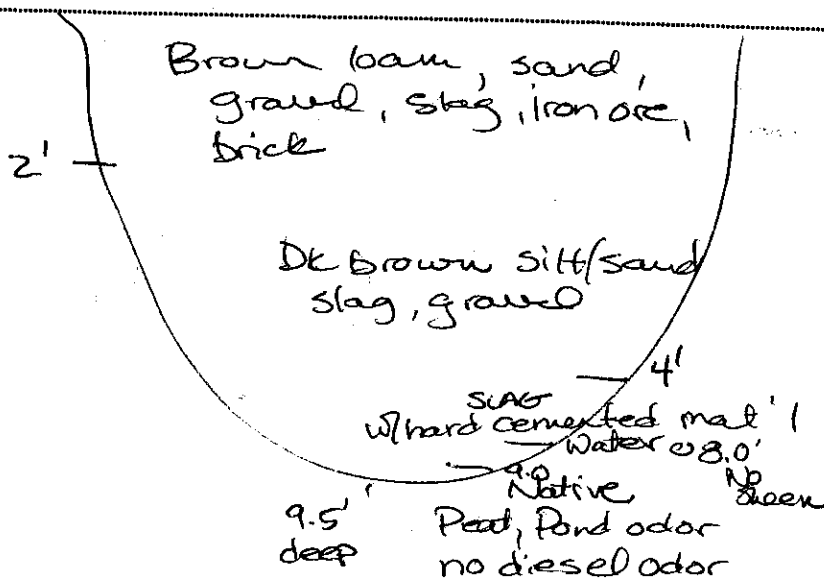 Brown loam, sand,
gravel, slag, iron ore,
brick
2'
Dk brown silt/sand
slag, gravel
4'
SLAG
w/hard cemented mat'l
Water @ 8.0'
No
Sheen
9.0
Native
9.5'
deep
Peat, Pond odor
no diesel odor